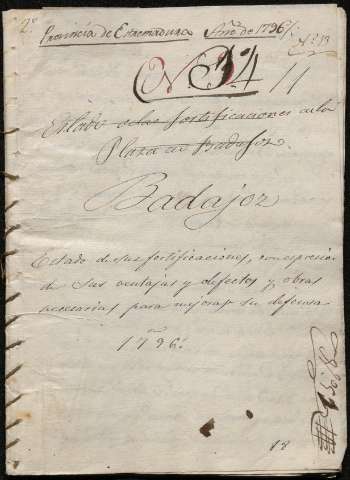 2º
Provincia de Extremadura Año de 1796
Nº 13
N. 14 11
Estado de las fortificaciones de la
Plaza de Badajoz.
Badajoz
Estado de sus fortificaciones, con espresion
de sus ventajas y defectos y obras
necesarias para mejorar su defensa
1796.
18